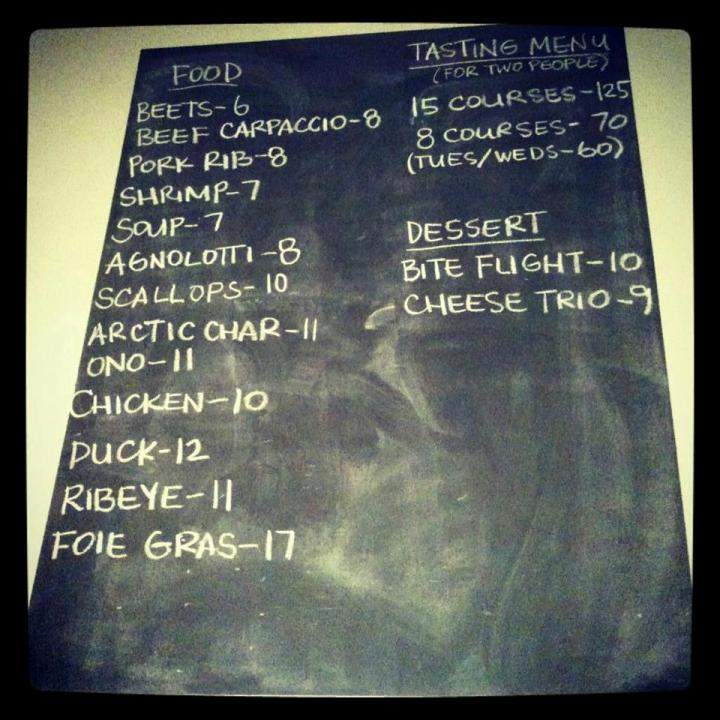 FOOD
BEETS-6
BEEF CARPACCIO-8
PORK RIB-8
SHRIMP-7
SOUP-7
AGNOLOTTI-8
SCALLOPS-10
ARCTIC CHAR-11
ONO-11
CHICKEN-10
DUCK-12
RIBEYE-11
FOIE GRAS-17
TASTING MENU
(FOR TWO PEOPLE)
15 COURSES-125
8 COURSES-70
(TUES/WEDS-60)
DESSERT
BITE FLIGHT-10
CHEESE TRIO-9